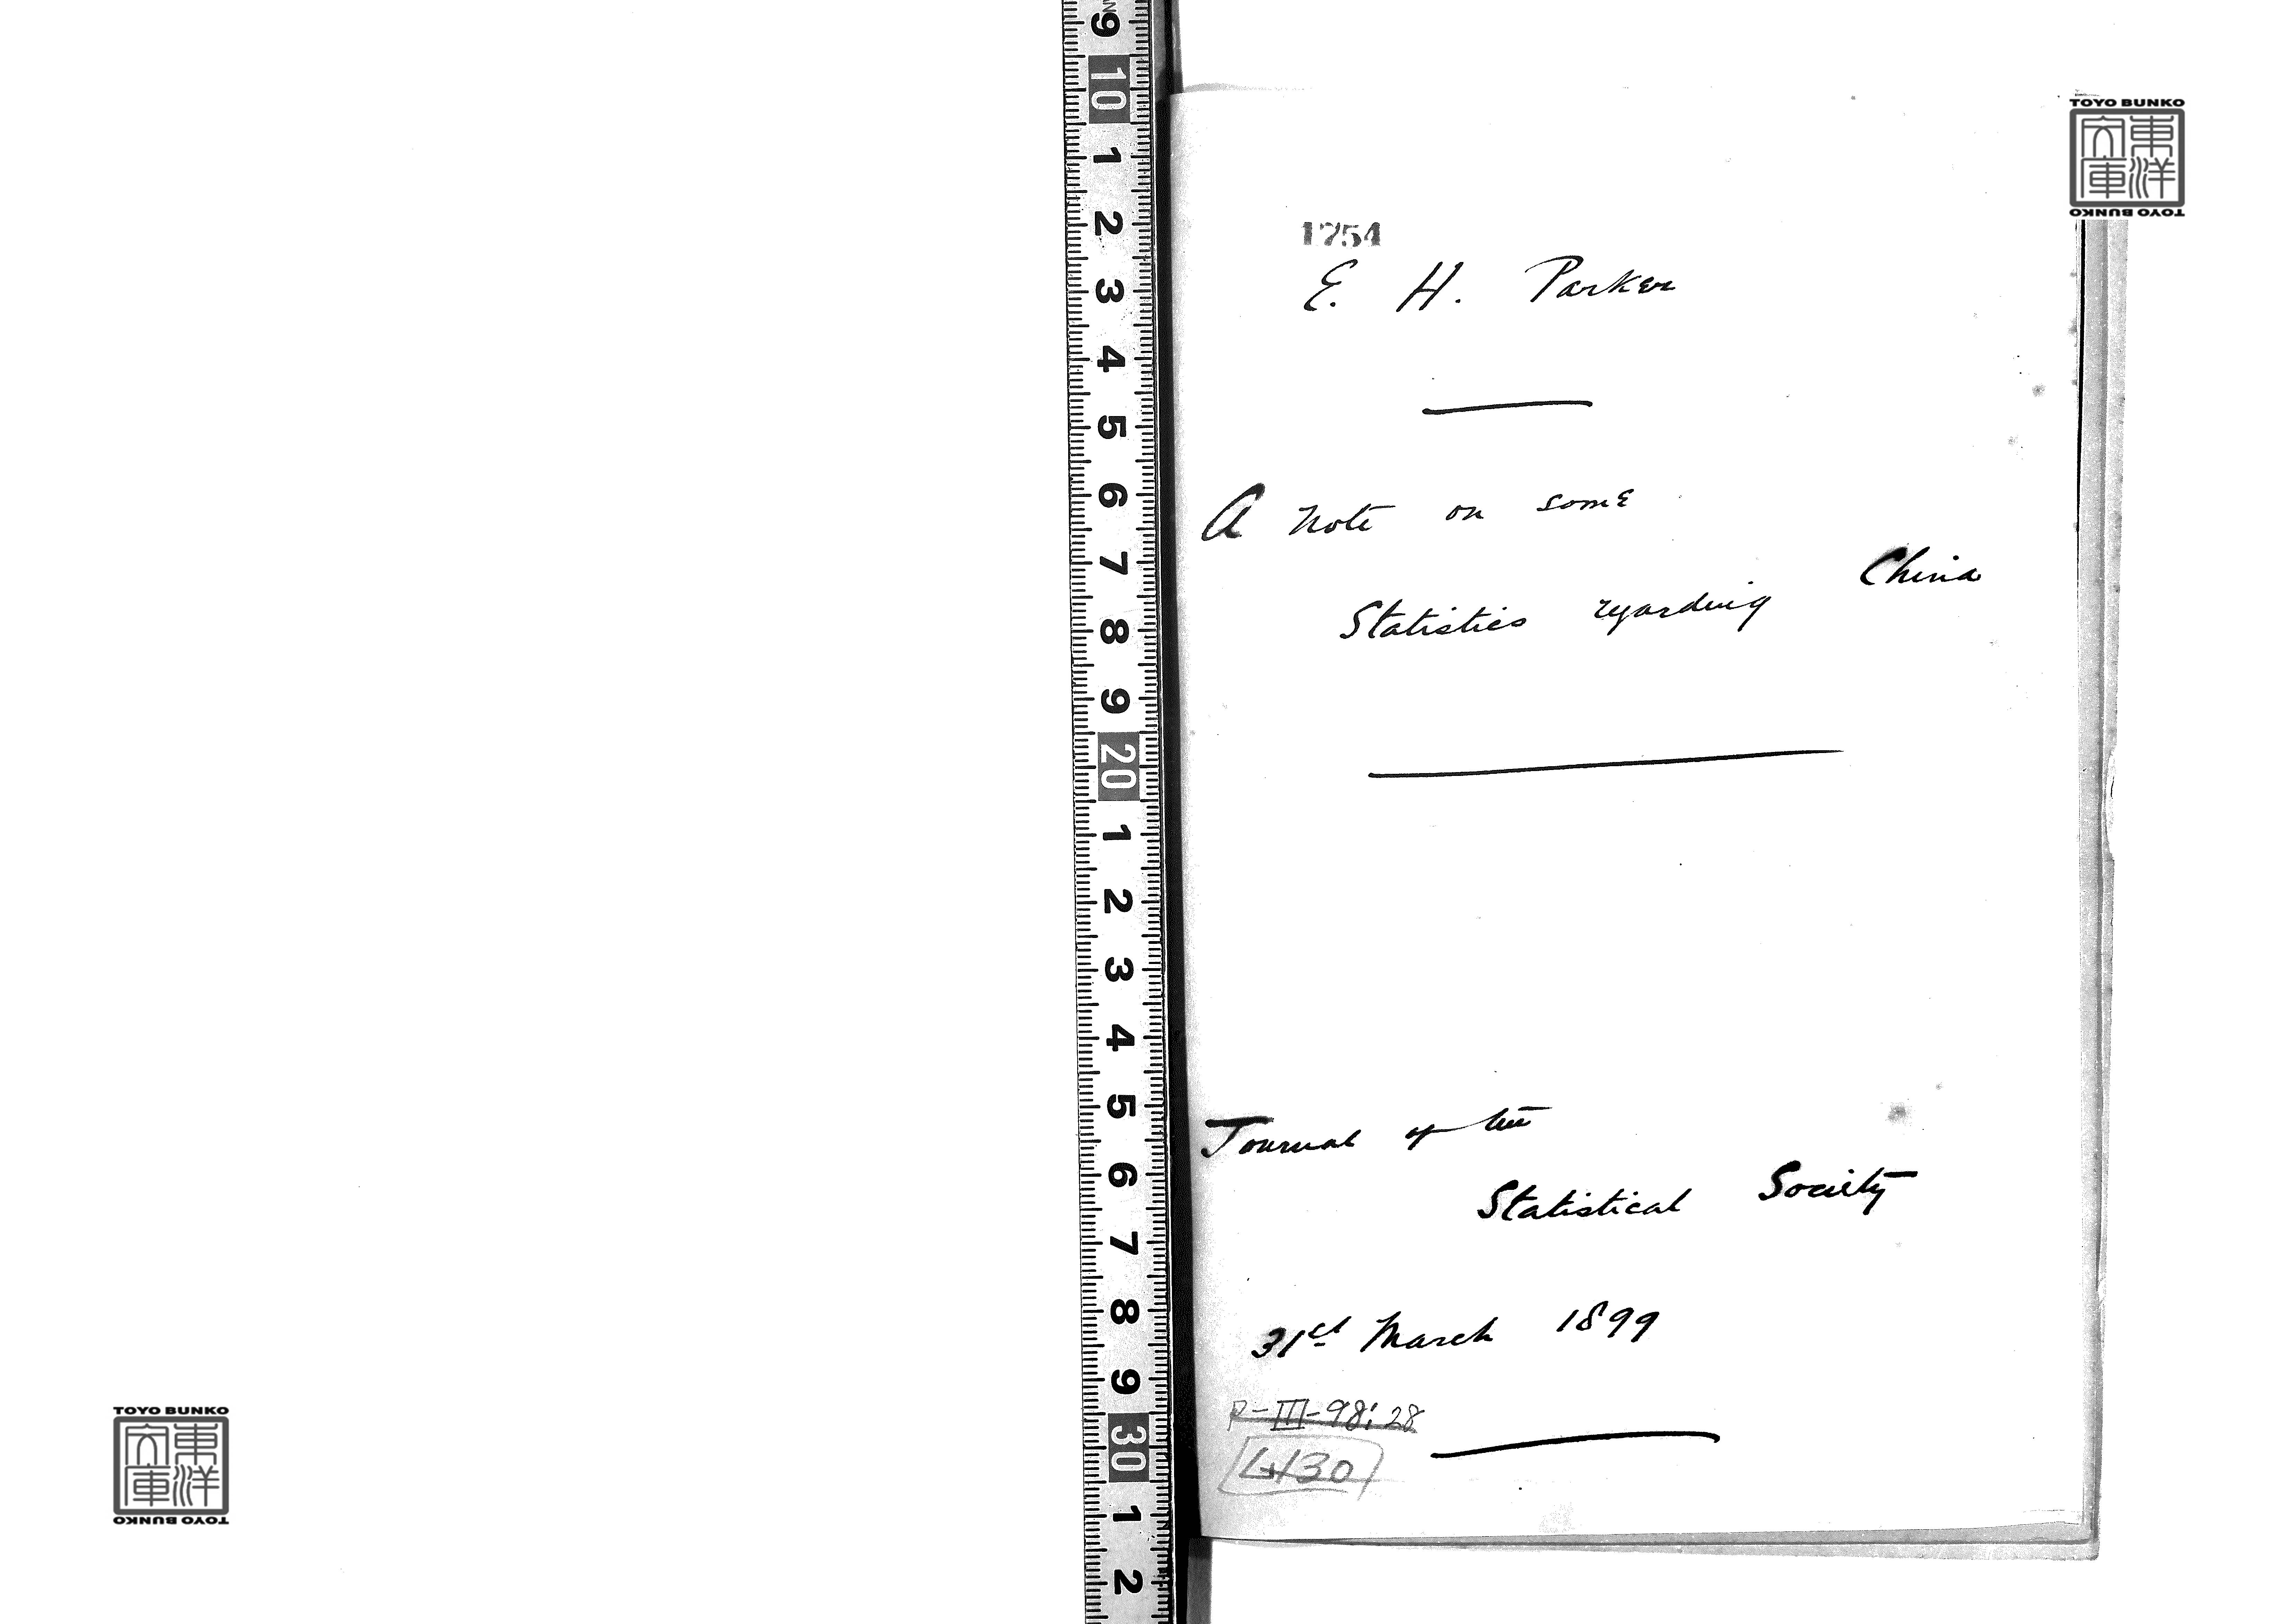 TOYO BUNKO
東洋文庫
TOYO BUNKO
1754
E. H. Parker
A note on some
Statistics regarding China
Journal of the
Statistical Society
31st March 1899
P-III-98; 28
4130
TOYO BUNKO
東洋文庫
TOYO BUNKO
9
10
1
2
3
4
5
6
7
8
9
20
1
2
3
4
5
6
7
8
9
30
1
2